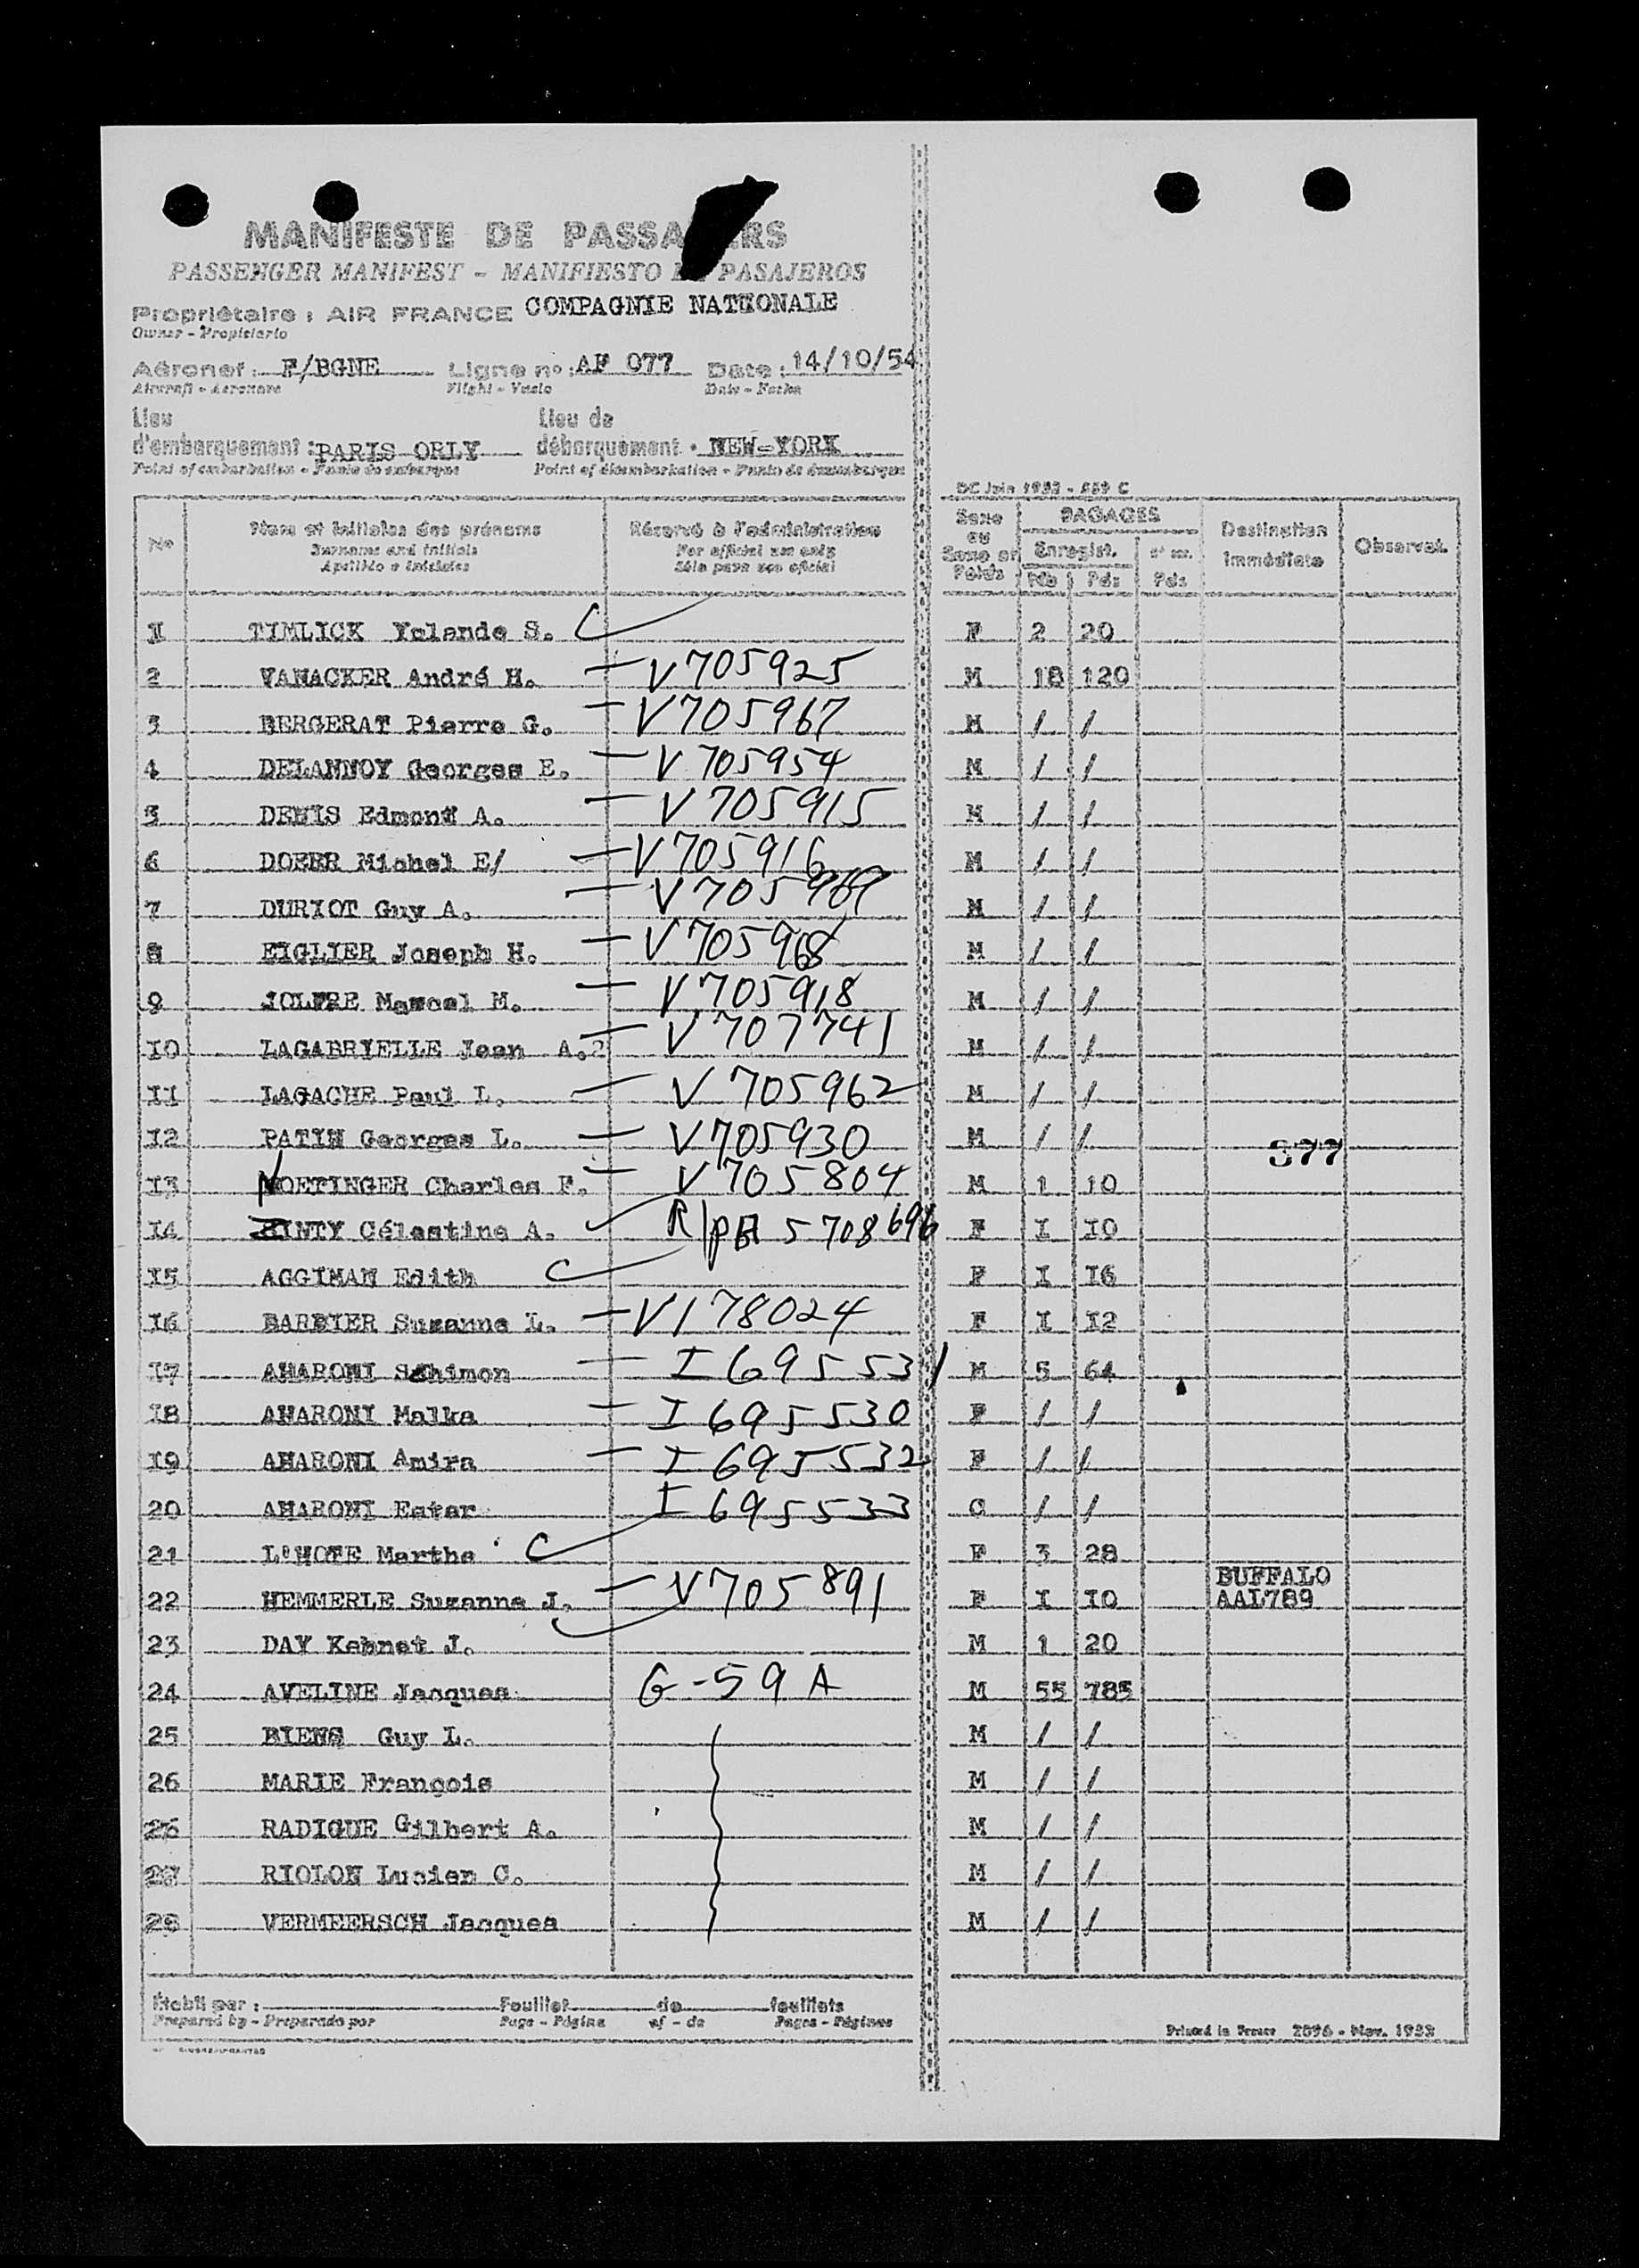 MANIFESTE DE PASSA ERS
PASSENGER MANIFEST - MANIFIESTO PASAJEROS
Propriétaire : AIR FRANCE COMPAGNIE NATIONALE
Owner - Propietario
Aéronef : F/BGNE Ligne no : AF 077 Date : 14/10/54
Aircraft - Aeronave Flight - Vuelo Date - Fecha
Lieu Lieu de
d'embarquement : PARIS ORLY débarquement : NEW-YORK
Point of embarkation - Punto de embarque Point of disembarkation - Punto de desembarque
DC Juin 1953 - 559 C
No Nom et initiales des prénoms Réservé à l'administration Sexe ou BAGAGES Destination immédiate Observat.
Surname and initials For official use only Sexe et Poids Enregist.
Apellido e iniciales Sólo para uso oficial Nb Pds Pds
1 TIMLICK Yolande S. C F 2 20
2 VANACKER André H. — V705925 M 18 120
3 BERGERAT Pierre G. — V705967 M / /
4 DELANNOY Georges E. — V705954 M / /
5 DENIS Edmond A. — V705915 M / /
6 DOERR Michel E/ — V705916 M / /
7 DURIOT Guy A. — V705969 M / /
8 EIGLIER Joseph H. — V705968 M / /
9 JOLFRE Marcel M. — V705918 M / /
10 LAGABRIELLE Jean A. — V707741 M / /
11 LAGACHE Paul L. — V705962 M / /
12 PATIN Georges L. — V705930 M / / 377
13 NOETINGER Charles F. — V705804 M 1 10
I4 INTY Célestine A. R/P 5708696 F I I0
I5 AGGIMAN Edith C F I I6
I6 BARBIER Suzanne L. — V178024 F I I2
I7 AHARONI Schimon — I695531 M 5 64
I8 AHARONI Malka — I695530 F / /
I9 AHARONI Amira — I695532 F / /
20 AHARONI Ester I695533 C / /
21 L'HOTE Marthe C F 3 28
22 HEMMERLE Suzanne J. — V705891 F I I0 BUFFALO
AAL789
23 DAY Kebnet J. M 1 20
24 AVELINE Jacques G-59A M 55 785
25 BIENS Guy L. M / /
26 MARIE François M / /
26 RADIGUE Gilbert A. M / /
27 RIOLON Lucien C. M / /
28 VERMEERSCH Jacques M / /
Établi par : Feuillet de feuillets
Prepared by - Preparado por Page - Página of - de Pages - Páginas
Printed in France 2896 - Nov. 1953